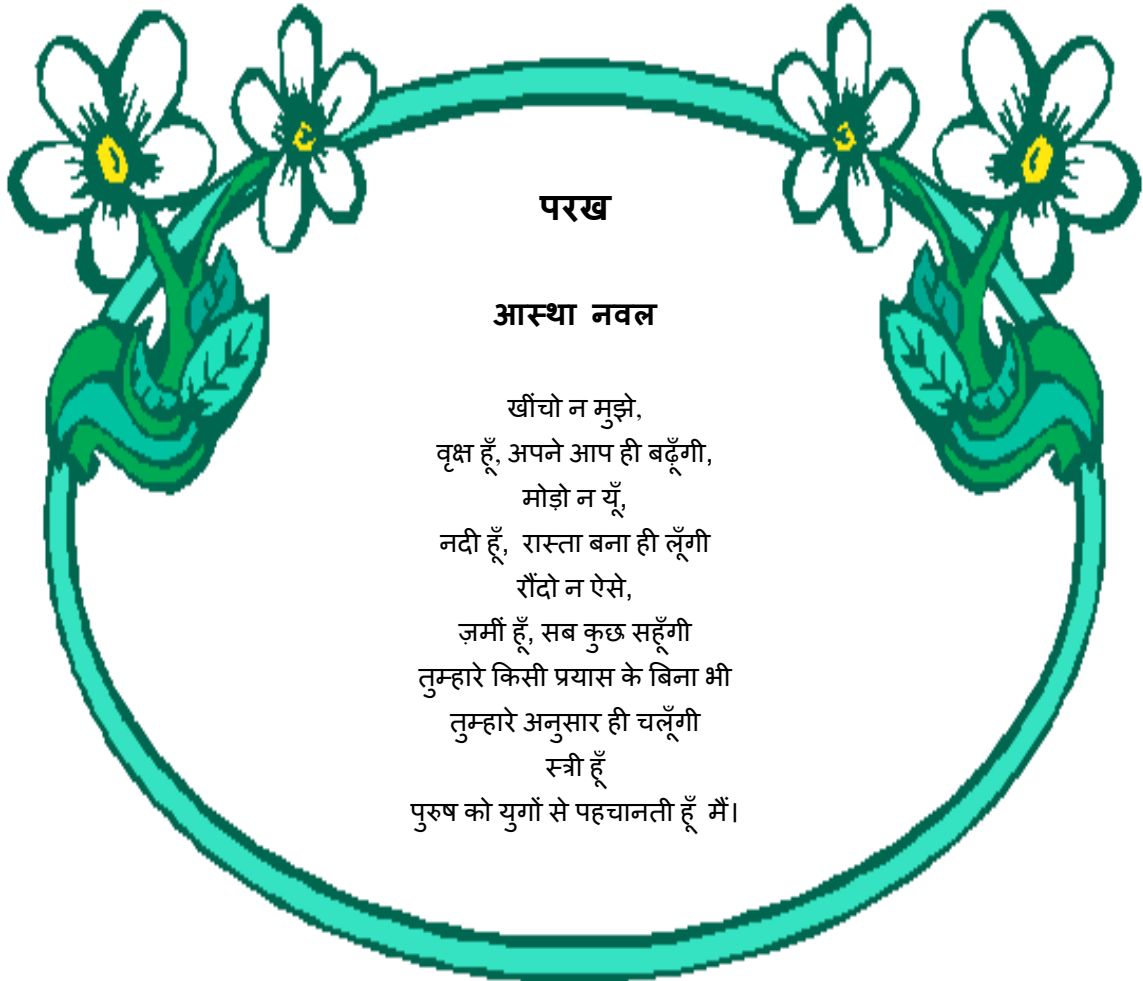 परख
आस्था नवल
खींचो न मुझे,
वृक्ष हूँ, अपने आप ही बढ़ूँगी,
मोड़ो न यूँ,
नदी हूँ, रास्ता बना ही लूँगी
रौंदो न ऐसे,
ज़मीं हूँ, सब कुछ सहूँगी
तुम्हारे किसी प्रयास के बिना भी
तुम्हारे अनुसार ही चलूँगी
स्त्री हूँ
पुरुष को युगों से पहचानती हूँ मैं।